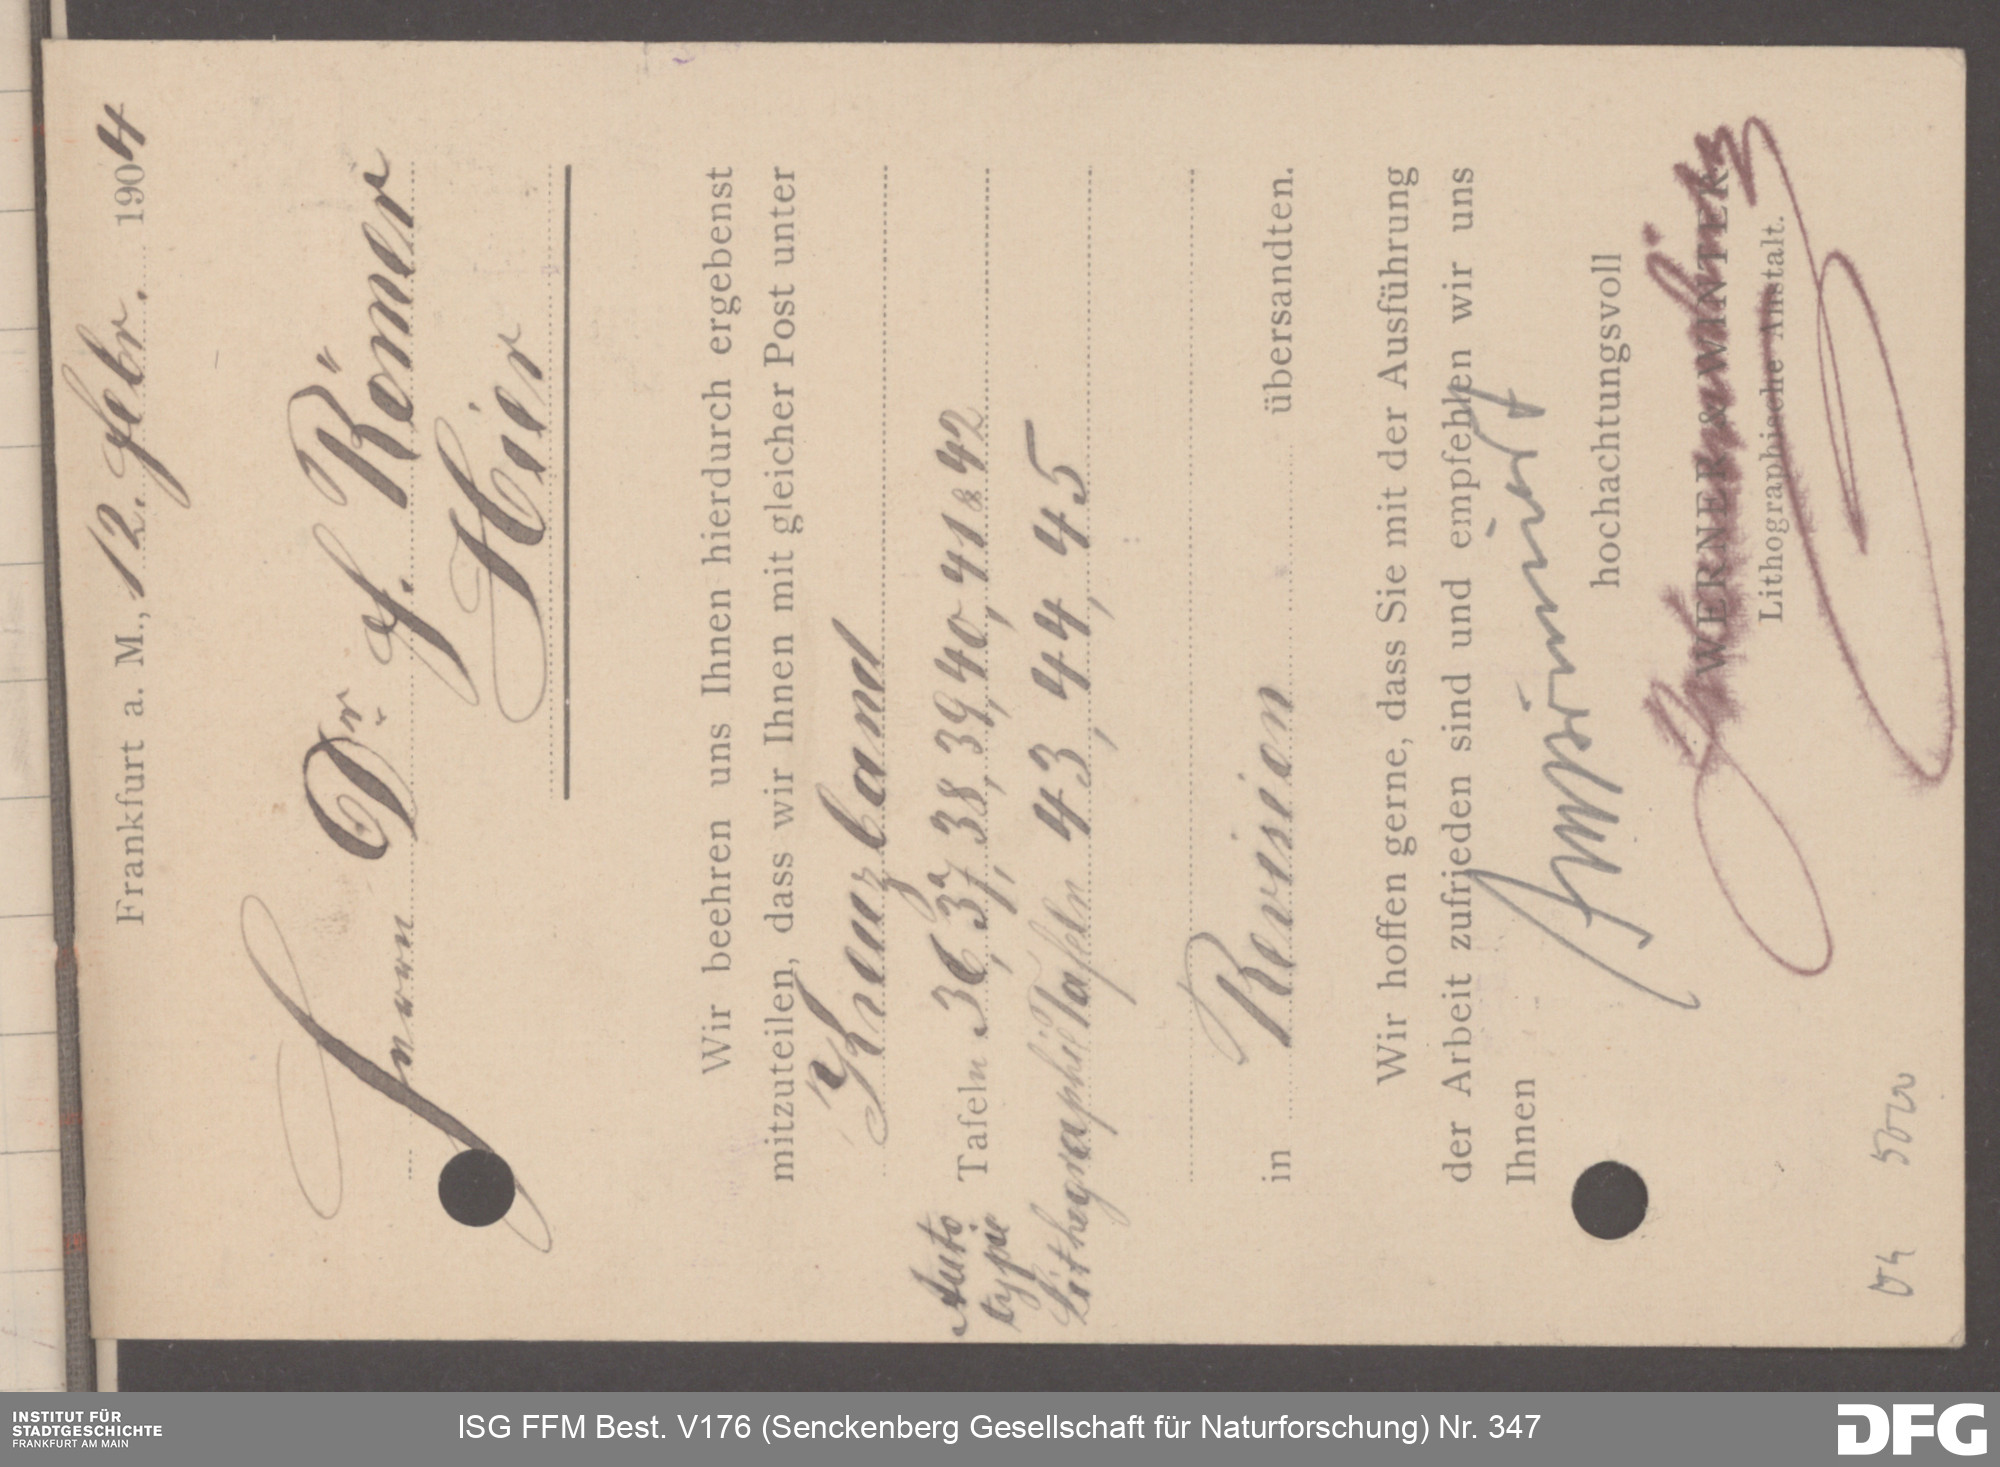 Frankfurt a. M., 12. Febr. 1904
Herrn Dr. F. Römer
Hier
Wir beehren uns Ihnen hierdurch ergebenst
mitzuteilen, dass wir Ihnen mit gleicher Post unter
Kreuzband
Auto
typie
Tafeln 36, 37a, 38, 39, 40, 41 & 42
Lithographie Tafeln 43, 44, 45
in Revision übersandten.
Wir hoffen gerne, dass Sie mit der Ausführung
der Arbeit zufrieden sind und empfehlen wir uns
Ihnen
hochachtungsvoll
WERNER & WINTER
Lithographische Anstalt.
5000
INSTITUT FÜR
STADTGESCHICHTE
FRANKFURT AM MAIN
ISG FFM Best. V176 (Senckenberg Gesellschaft für Naturforschung) Nr. 347
DFG